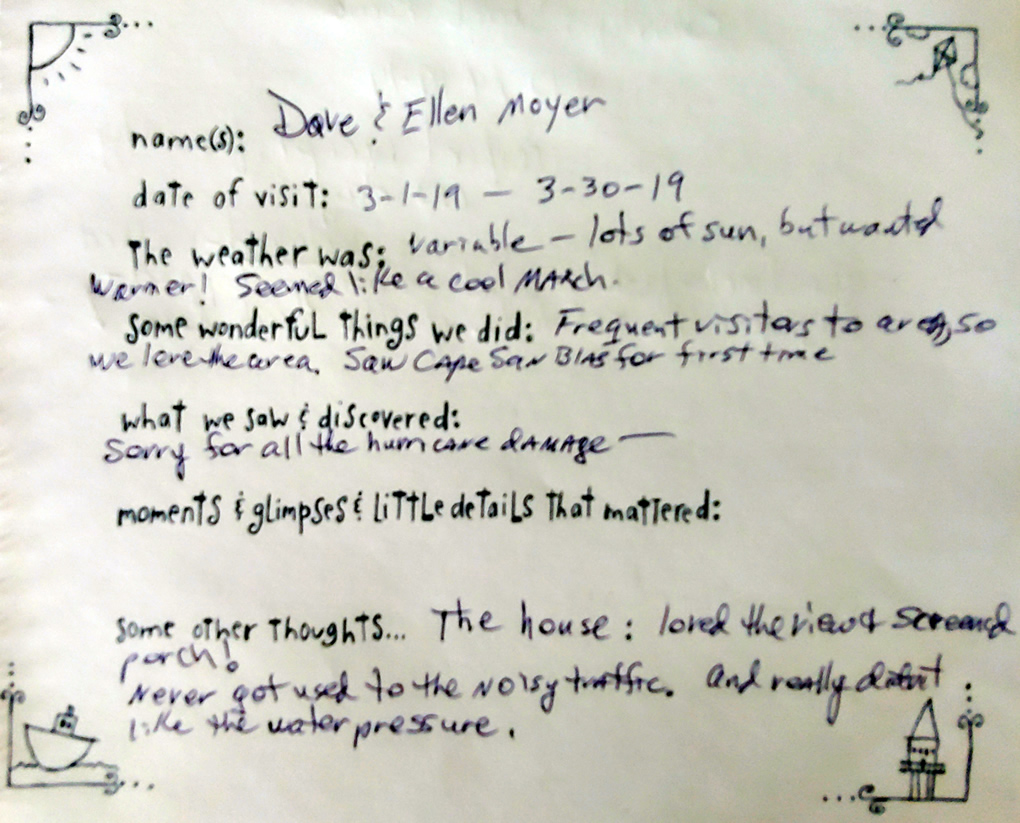 name(s): Dave & Ellen Moyer
date of visit: 3-1-19 — 3-30-19
The weather was: variable – lots of sun, but wanted
warmer! Seemed like a cool MARch.
some wonderful things we did: Frequent visitors to area, so
we love the area. Saw CAPe SAN BlAs for first time
what we saw & discovered:
Sorry for all the hurricane DAMAge —
moments & glimpses & little details that mattered:
some other thoughts... The house: loved the view & screened
porch!
Never got used to the noisy traffic. And really didn't
like the water pressure.